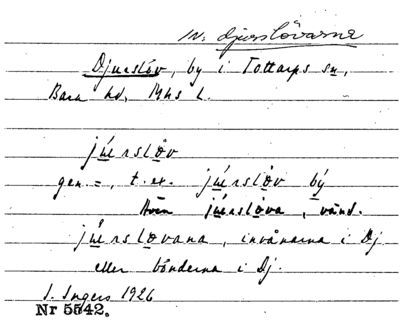 In. djurslövarna
Djurslöv, by i Tottarps sn,
Bara hd, Mhs l.
júrsløv
gen. =, t. ex. júrsløv bý
júrsløva, vänd.
júrsløvana, invånarna i Dj
eller bönderna i Dj.
I. Ingers 1926
Nr 5542.